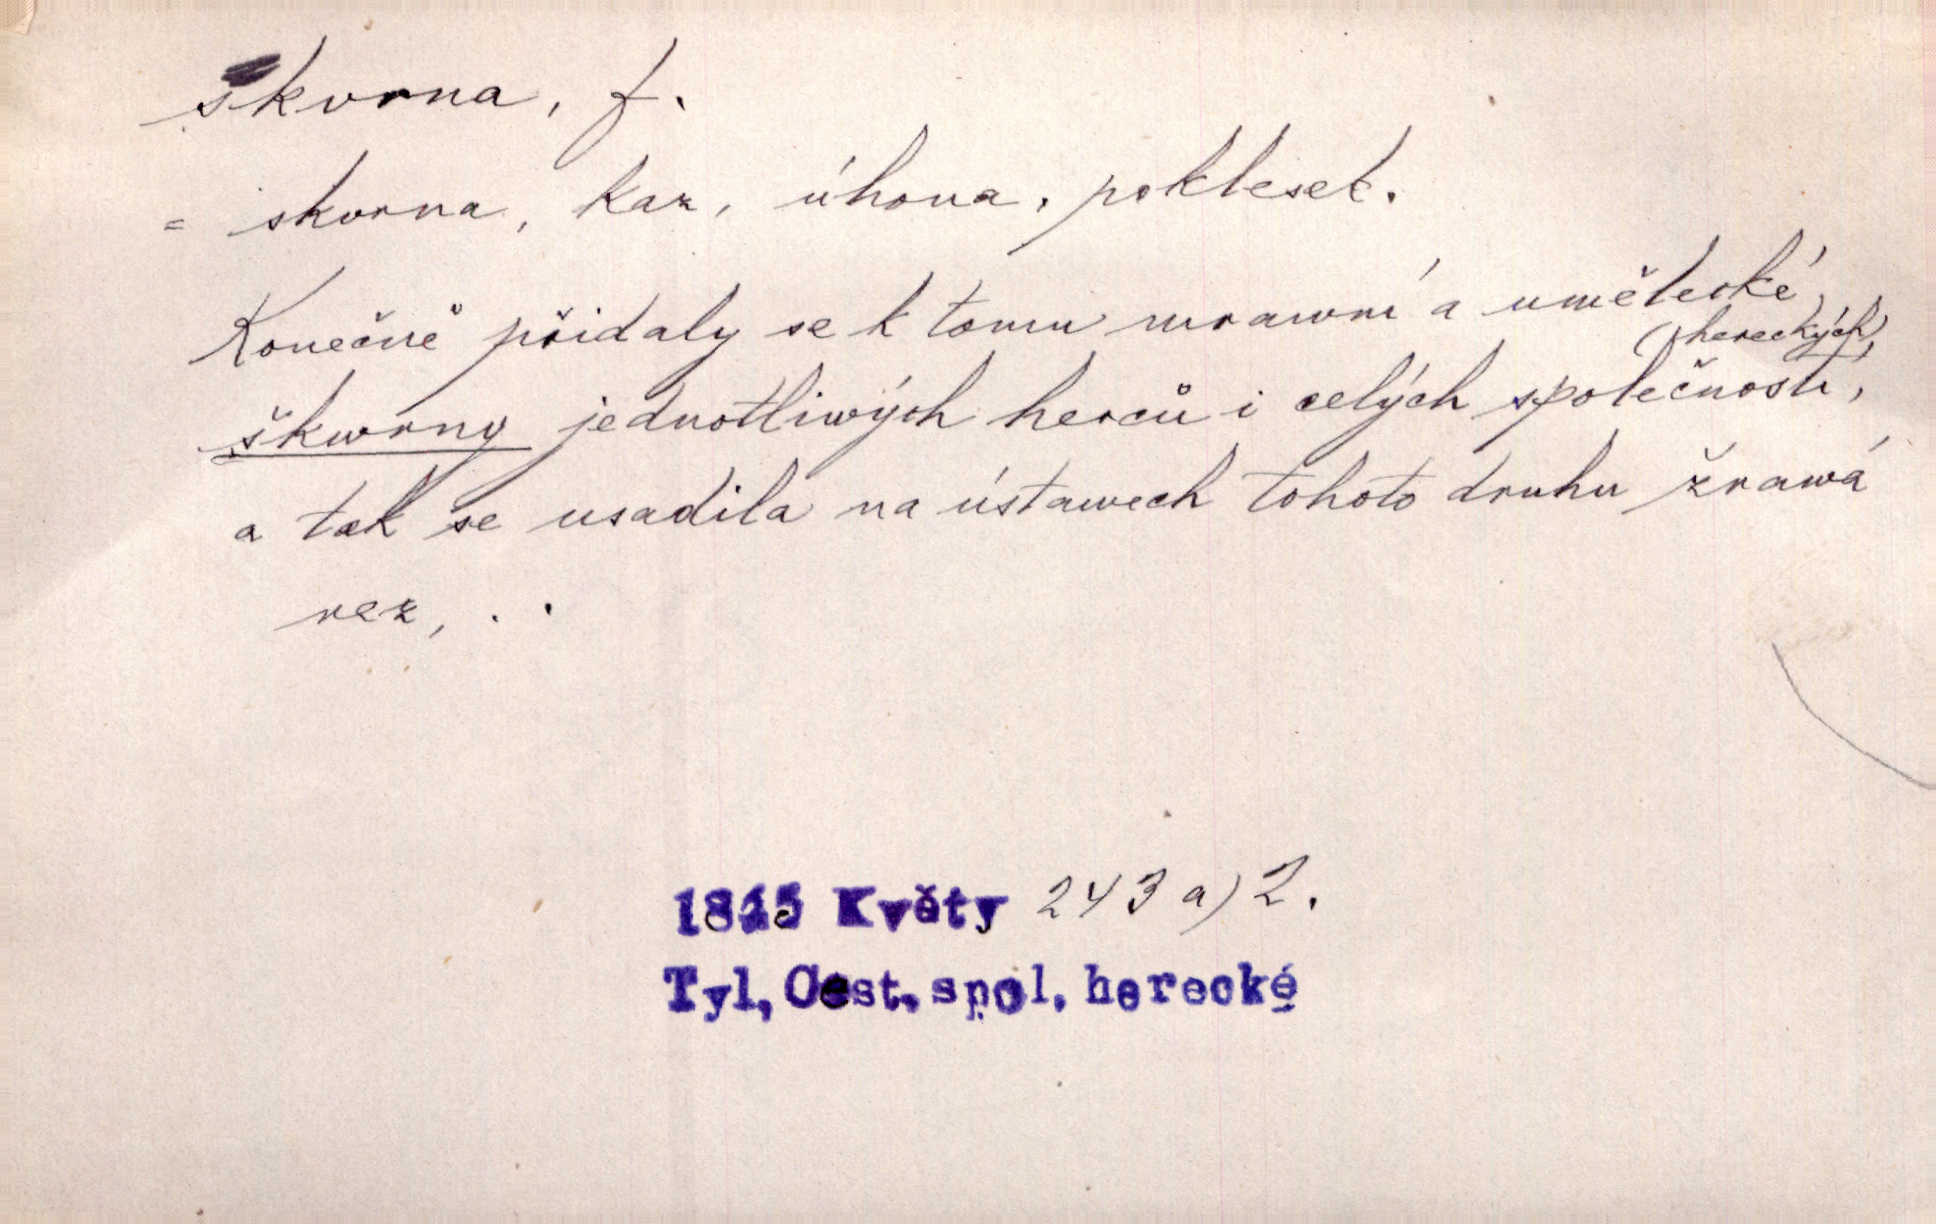 skvrna, f.
= skvrna, kaz, úhona, poklesek.
Konečně přidaly se k tomu mrawní a umělecké
(hereckých)
škwrny jednotliwých herců i celých společností,
a tak se usadila na ústawech tohoto druhu žrawá
rez, . .
1845 Květy 243 a) 2.
Tyl, Cest. spol. herecké